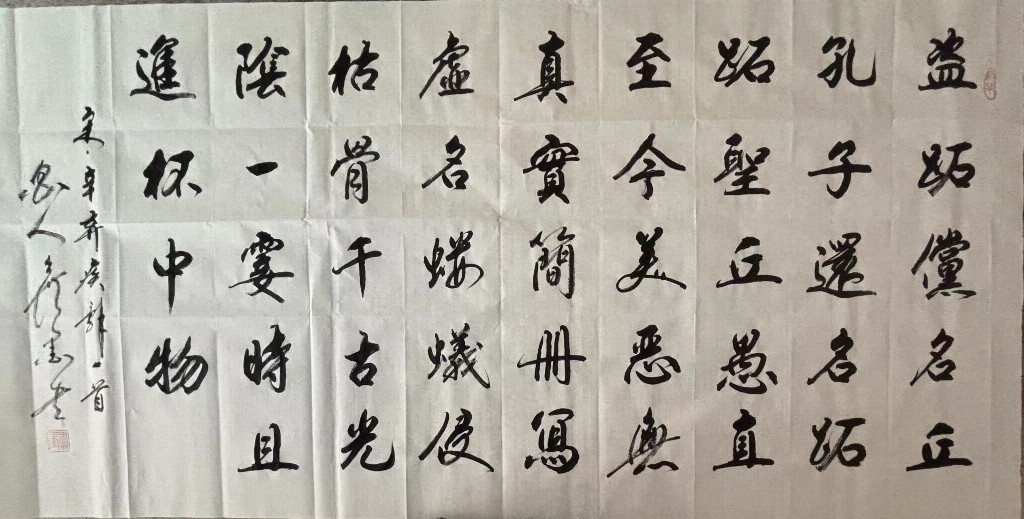 盗跖儻名丘
孔子還名跖
跖聖丘愚直
至今美恶無
真實簡冊寫
虛名蝼蟻侵
枯骨千古光
陰一霎時且
進杯中物
宋·辛弃疾辞一首
人